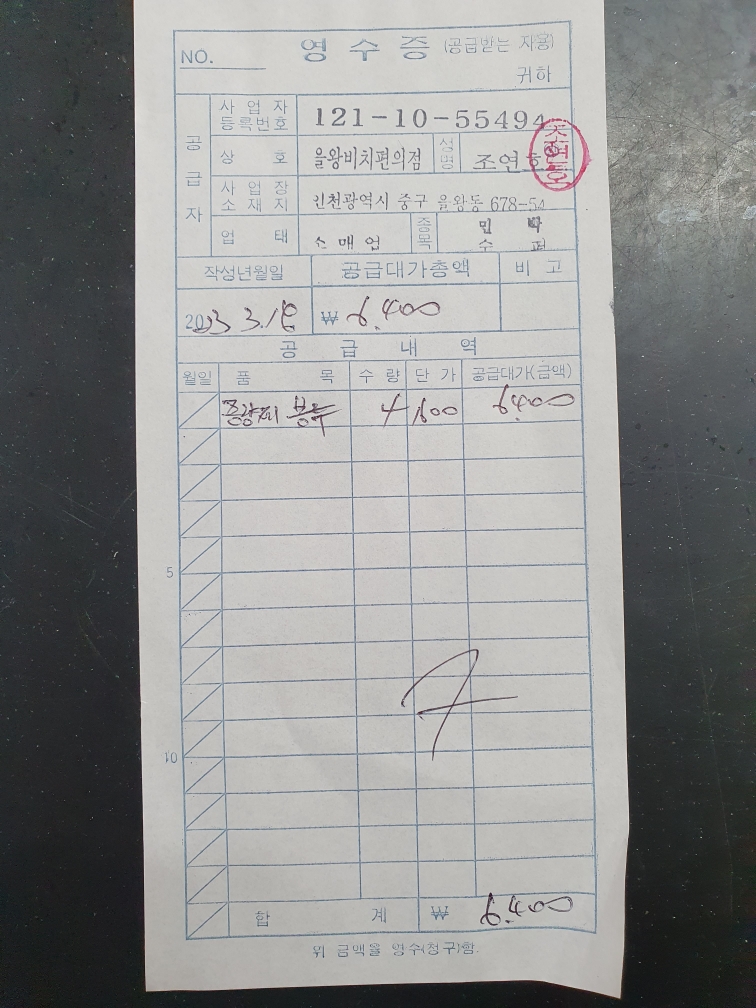 NO. 영 수 증 (공급받는 자용)
귀하
공급자
사업자등록번호 121-10-55494
상호 을왕비치편의점 성명 조연호
사업장소재지 인천광역시 중구 을왕동 678-54
업태 소매업 종목 민박
수퍼
작성년월일 공급대가총액 비고
2023 3.18 ₩ 6.400
공 급 내 역
월일 품목 수량 단가 공급대가(금액)
종량제 봉투 4 1,600 6400
5
10
합 계 ₩ 6.400
위 금액을 영수(청구)함.